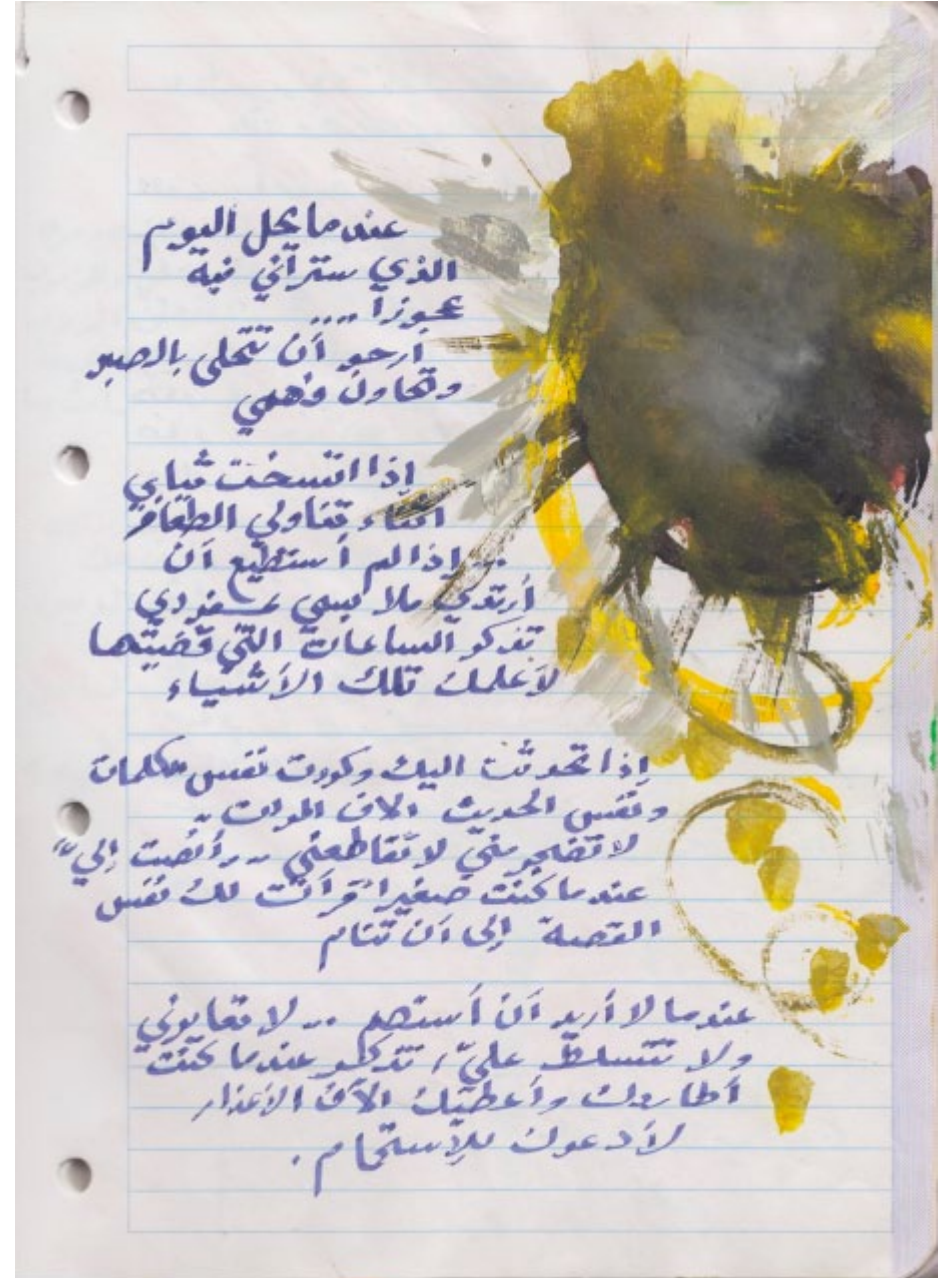 عندما يحل اليوم
الذي ستراني فيه
عجوزاً ....
أرجو أن تتحلى بالصبر
وتحاول فهمي
إذا اتسخت ثيابي
أثناء تناولي الطعام
.. إذا لم أستطيع أن
أرتدي ملابسي بمفردي
تذكر الساعات التي قضيتها
لأعلمك تلك الأشياء
إذا تحدثت اليك وكررت نفس الكلمات
ونفس الحديث الاف المرات ..
لا تضجر مني لا تقاطعني ... أنصت إليّ
عندما كنت صغيراً قرأت لك نفس
القصة إلى أن تنام
عندما لا أريد أن أستحم .. لا تعايرني
ولا تتسلط عليّ، تذكر عندما كنت
أطاردك وأعطيك الآف الأعذار
لأدعوك للإستحمام .